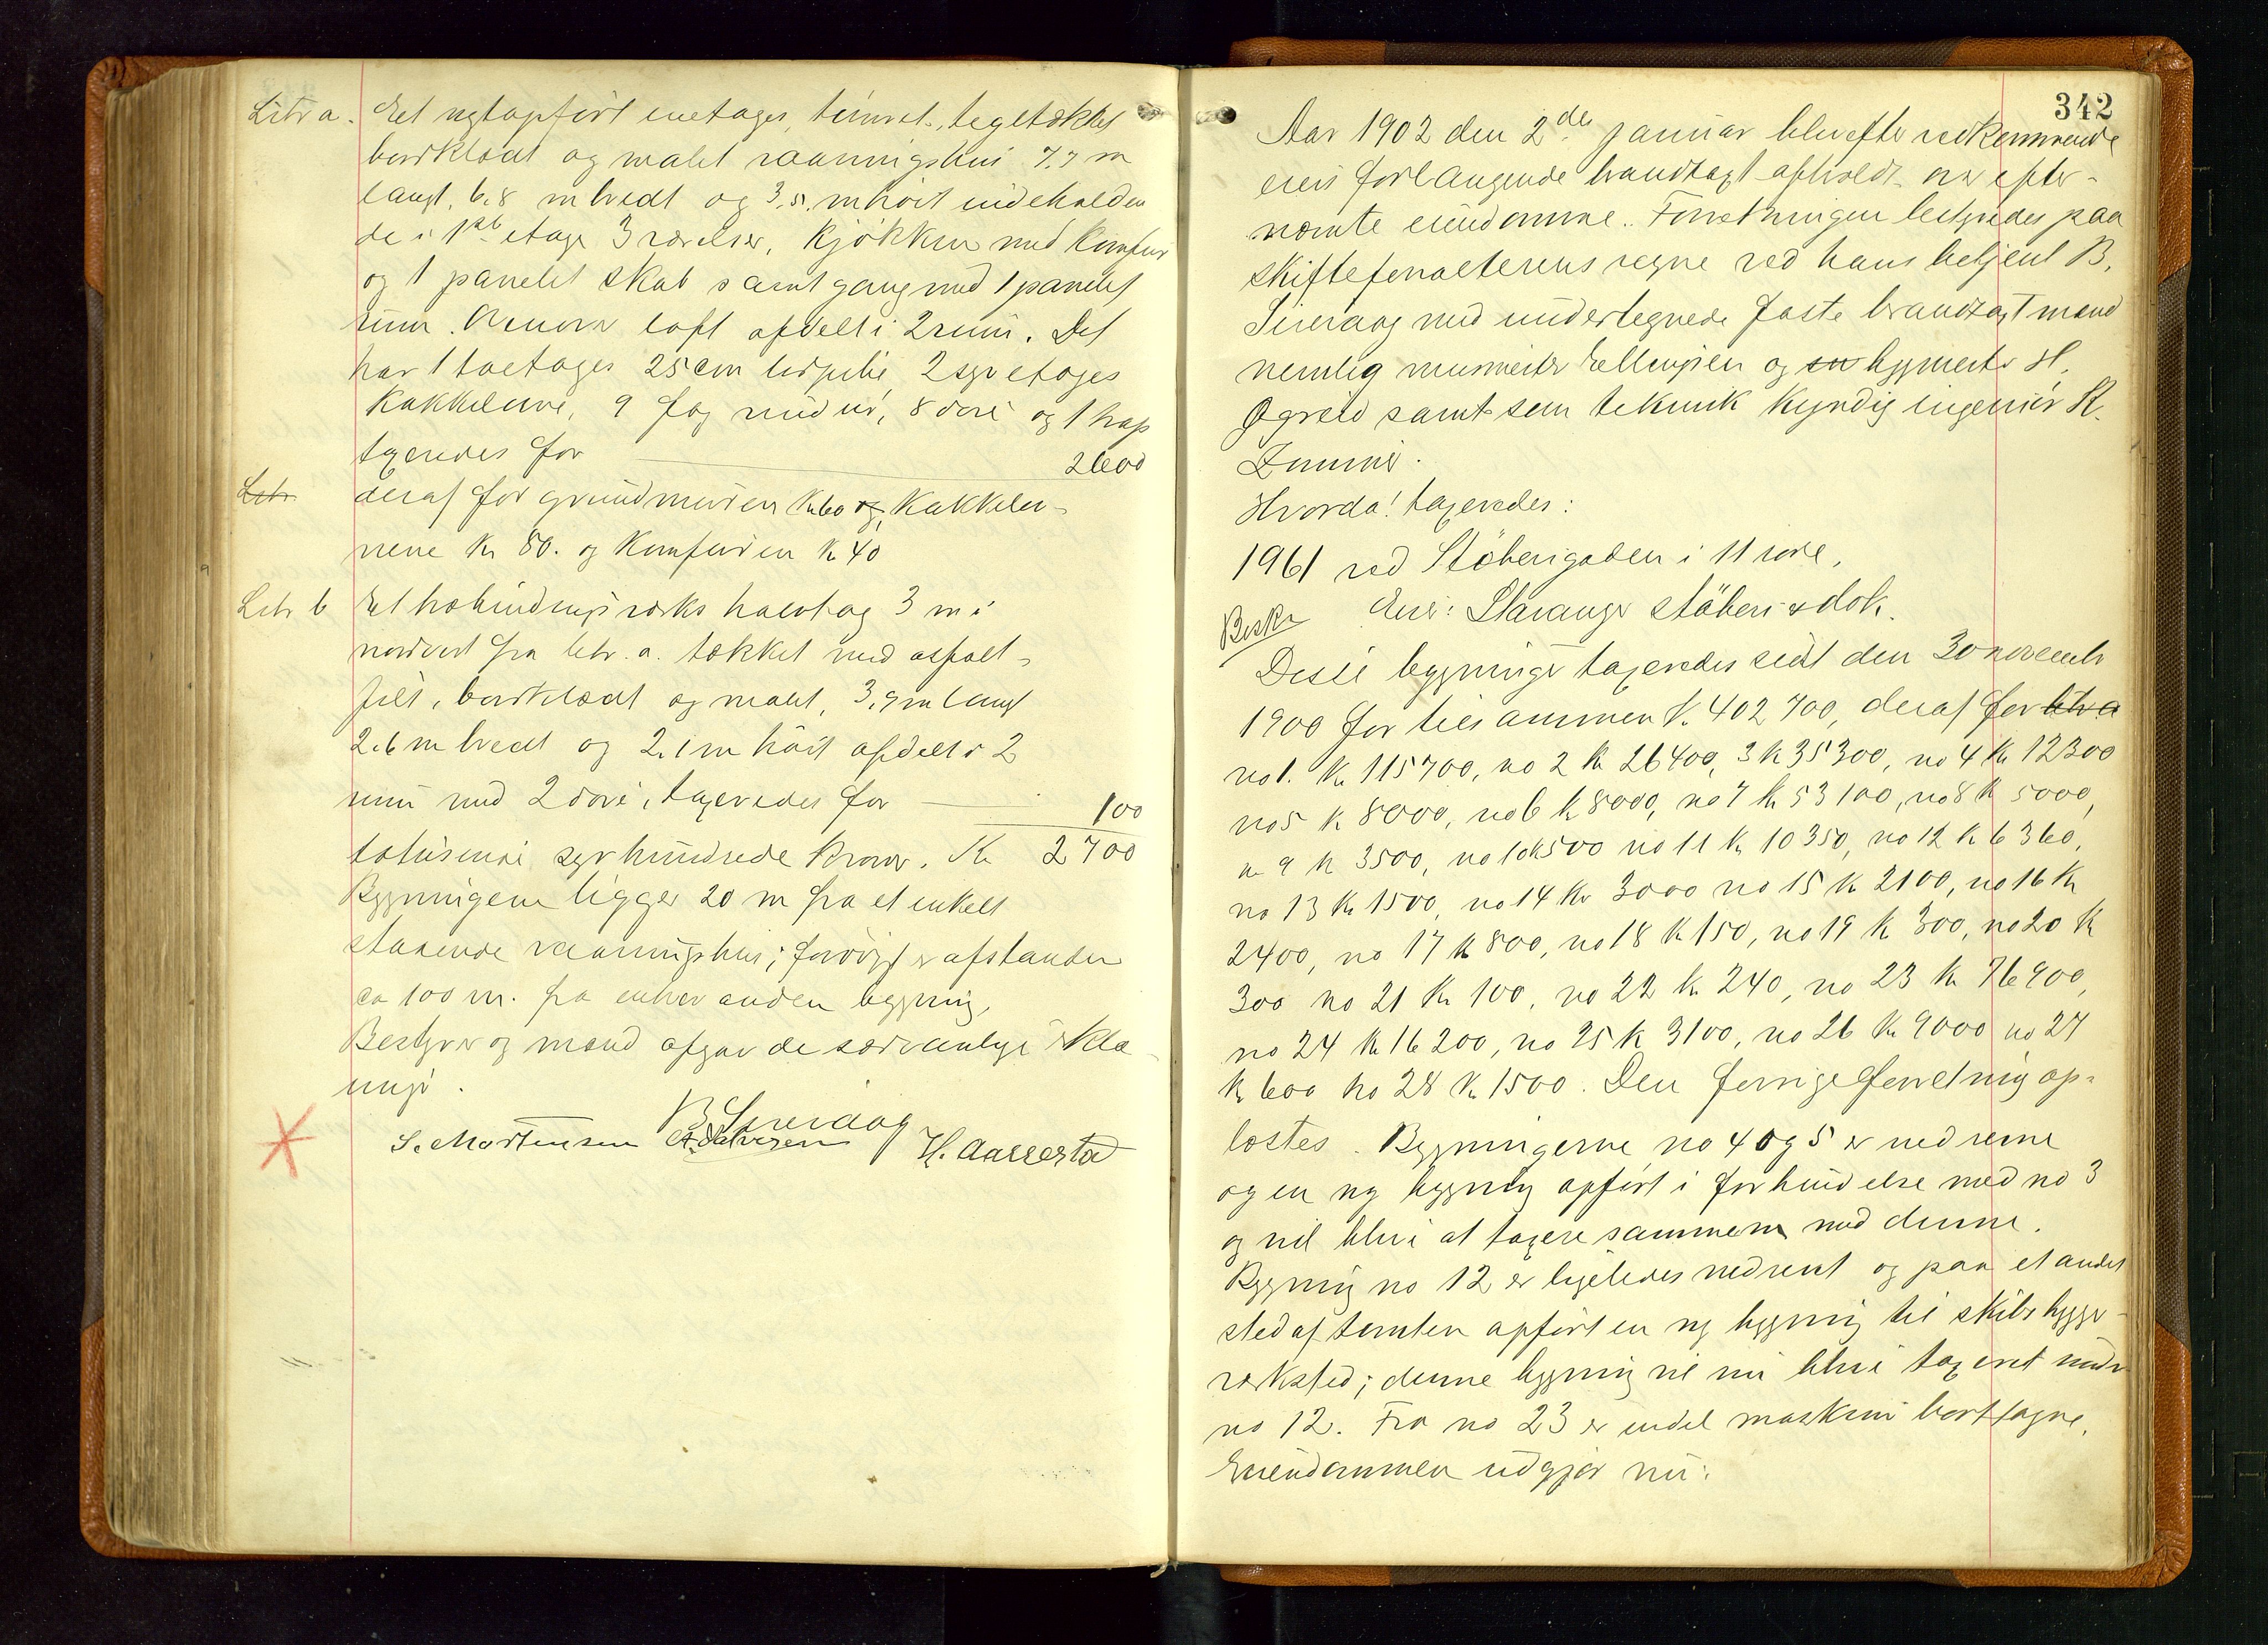 Litr a. Et nytopført enetages, tømret, tegltækket
bordklædt og malet vaaningshus 7,7 m
langt, 6,8 m bredt og 3,5 m høit indeholden
de i 1ste etage 3 værelser, kjøkken med komfur
og 1 panelet skab samt gang med 1 panelet
rum. Ovenover loft afdelt i 2 rum. Det
har 1 toetages 25 cm brdpibe, 2 syvetages
kakkelovne, 9 fag vinduer, 8 døre og 1 trap
taxeredes for 2600
Litr. deraf for grundmuren K 60 og, kakkelov-
nene Kr 80. og komfuren K 40
Litr b Et træbindingsværks halvtag 3 m i
nordvest fra litr. a. tækket med asfalt-
filt, bordklædt og malet, 3,9 m langt
2.6 m bredt og 2.1 m høit afdelt i 2
rum med 2 døre, taxeredes for 100
totusinde syvhundrede kroner. Kr 2700
Bygningene ligger 20 m fra et enkelt
staaende vaaningshus; forøvrigt er afstanden
ca 100 m. fra enhver anden bygning.
Bestyrer og mænd afgav de sædvanlige erklæ
ringer.
B Sireraag
S. Mortensen A. Salvesen H. Aarrestad
342
Aar 1902 den 2den januar blev efter vedkommende
eiers forlangende brandtaxt afholdt over efter-
nævnte eiendomme. Forretningen bestyredes paa
skifteforvalterens vegne ved hans betjent B.
Sireraag med undertegnede faste brandtaxtmænd
nemlig murmester Ellingsen og bygmester H.
Øgreid samt som teknisk kyndig ingeniør K.
Zimmer.
Hvorda! taxeredes:
1961 ved Støberigaden i 11 rode.
Eier: Stavanger støberi & dok.
Beskr
Disse bygninger taxeredes sidst den 30 november
1900 for tilsammen K. 402 700, deraf for litr a
no 1. Kr 115700, no 2 Kr 26400, 3 K 35300, no 4 Kr 12300
no 5 K 8000, no 6 K 8000, no 7 Kr 53100, no 8 K 5000,
no 9 K 3500, no 10 K 500 no 11 K 10350, no 12 K 6360,
no 13 Kr 1500, no 14 Kr 3000 no 15 K 2100, no 16 Kr
2400, no 17 K 800, no 18 K 150, no 19 K 300, no 20 K
300 no 21 Kr 100, no 22 Kr 240, no 23 Kr 76900,
no 24 Kr 16200, no 25 K 3100, no 26 Kr 9000 no 27
K 600 no 28 K 1500. Den forrige forretning op-
læstes. Bygningerne no 4 og 5 er nedrevne
og en ny bygning opført i forbindelse med no 3
og vil blive at taxere sammen med denne.
Bygning no 12 er ligeledes nedrevet og paa et andet
sted af tomten opført en ny bygning til skibsbygger-
verksted; denne bygning vil nu blive taxeret under
no 12. Fra no 23 er endel maskiner borttagne.
Eiendommen udgjør nu: